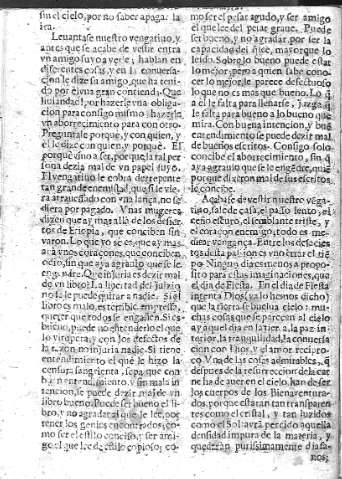 sin el cielo, por no saber apagar la
ira.
Leuantase nuestro vengatiuo, y
antes que se acabe de vestir entra
vn amigo suyo a verle; hablan en
diferentes cosas, y en la conuersa-
cion le dize su amigo, que ha teni-
do por èl vna gran contienda. Que
hazerle vna obliga-
cion para consigo mismo, hazerla
vn aborrecimiento para con otro.
Preguntale porque, y con quien, y
el le dize con quien, y porquè. El
porquè vino a ser, porque la tal per
sona dezia mal de vn papel suyo.
El vengatiuo le cobra de repente
tan grande enemistad, que si le vie-
ra atrauesado con vna lança, no se
diera por pagado. Vnas mugeres
dizen que ay mas allà de los desier
tos de Etiopia, que conciben sin
varon. Lo que yo sè es, que ay mas
acà vnos coraçones, que conciben
odio, sin que aya agrauio que se le
engendre. Que injuria es dezir mal
de vn libro? La libertad del juizio
no se la puede quitar a nadie. Si el
libro es malo, es terrible
querer que todos se engañen. Si es
bueno, puede no entenderlo el que
lo vitupera, y con los defectos de
la razon no injuria nadie. Si tiene
entendimiento el que le hizo la
censura sangrienta, sepa que con
buen entendimiento, y sin mala in
tencion, se puede dezir mal de vn
libro bueno. Puede ser bueno el li-
bro, y no agradar al que le lee, por
tener los genios encontrados; co-
mo ser el estilo conciso, y ser ami-
go el que lee de estilo copioso; co-
mo ser el pesar agudo, y ser amigo
el que lee del pesar graue. Puede
ser bueno, y no agradar, por ser la
capacidad del juez, mayor que lo
leìdo. Sobre lo bueno puede estar
lo mejor, pero a quien sabe cono-
cer lo mejor, le parece defectuoso
lo que no es mas que bueno. Lo q̃
a èl le falta para llenarse, juzga q̃
le falta para bueno a lo bueno que
mira. Con buena intencion, y buẽ
entendimiento se puede dezir mal
de buenos escritos. Consigo solo
concibe el aborrecimiento, sin q̃
aya agrauio que se le engẽdre, quiẽ
porque dixeron mal de sus escritos
le concibe.
Acabase de vestir nuestro venga-
tiuo, sale de casa, el passo lento, el
ceño escuro, el semblante triste, y
el coraçon enemigo; todo es me-
ditar vengança. Entre los desacier
tos desta passion es vno errar el tiẽ
po. Ningun dia es menos a propo-
sito para estas imaginaciones, que
el dia de Fiesta. En el dia de Fiesta
ingenta Dios (ya lo hemos dicho)
que la tierra se buelua cielo: mu-
chas cosas que se parecen al cielo
ay aquel dia en la tierra, la paz in-
terior, la tranquilidad, la conuersa
cion con Dios, y el amor reciproco-
co. Vna de las cosas admirables, q̃
despues de la resurreccion de la car
ne ha de auer en el cielo, han de ser
los cuerpos de los Bienauentura-
dos, porque estaràn tan transparen
tes como el cristal, y tan luzidos
como el Sol: avrà perdido aquella
densidad impura de la materia, y
quedaràn purissimamente diafa-
nos;